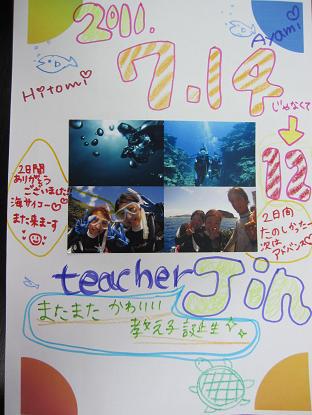 2011.
Ayami
7.14
Hitomi
じゃなくて
12
2日間
ありがとう
ございました!!
海サイコー♡
また来まーす
2日間
たのしかったー
次は
アドバンス♡
teacher Jin
またまた かわいい
教え子誕生